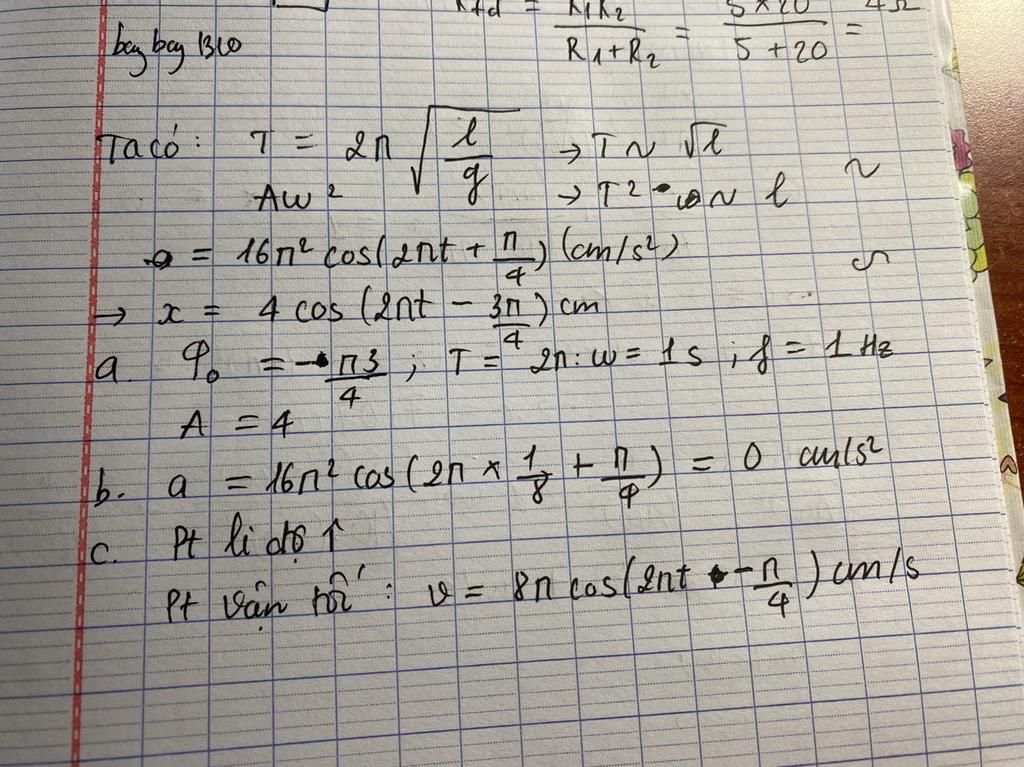 R₁R₂ / (R₁+R₂) = 5×20 / (5+20) = 4Ω
Ta có: T = 2π √(l/g) → T ~ √l ~
Aω² → T² ~ l
a = 16π² cos(2πt + π/4) (cm/s²)
→ x = 4 cos (2πt - 3π/4) cm
a. φ₀ = -π3/4 ; T = 2π : ω = 1s ; f = 1 Hz
A = 4
b. a = 16π² cos(2π × 1/8 + π/4) = 0 cm/s²
c. Pt li độ ↑
Pt vận tốc : v = 8π cos(2πt - π/4) cm/s